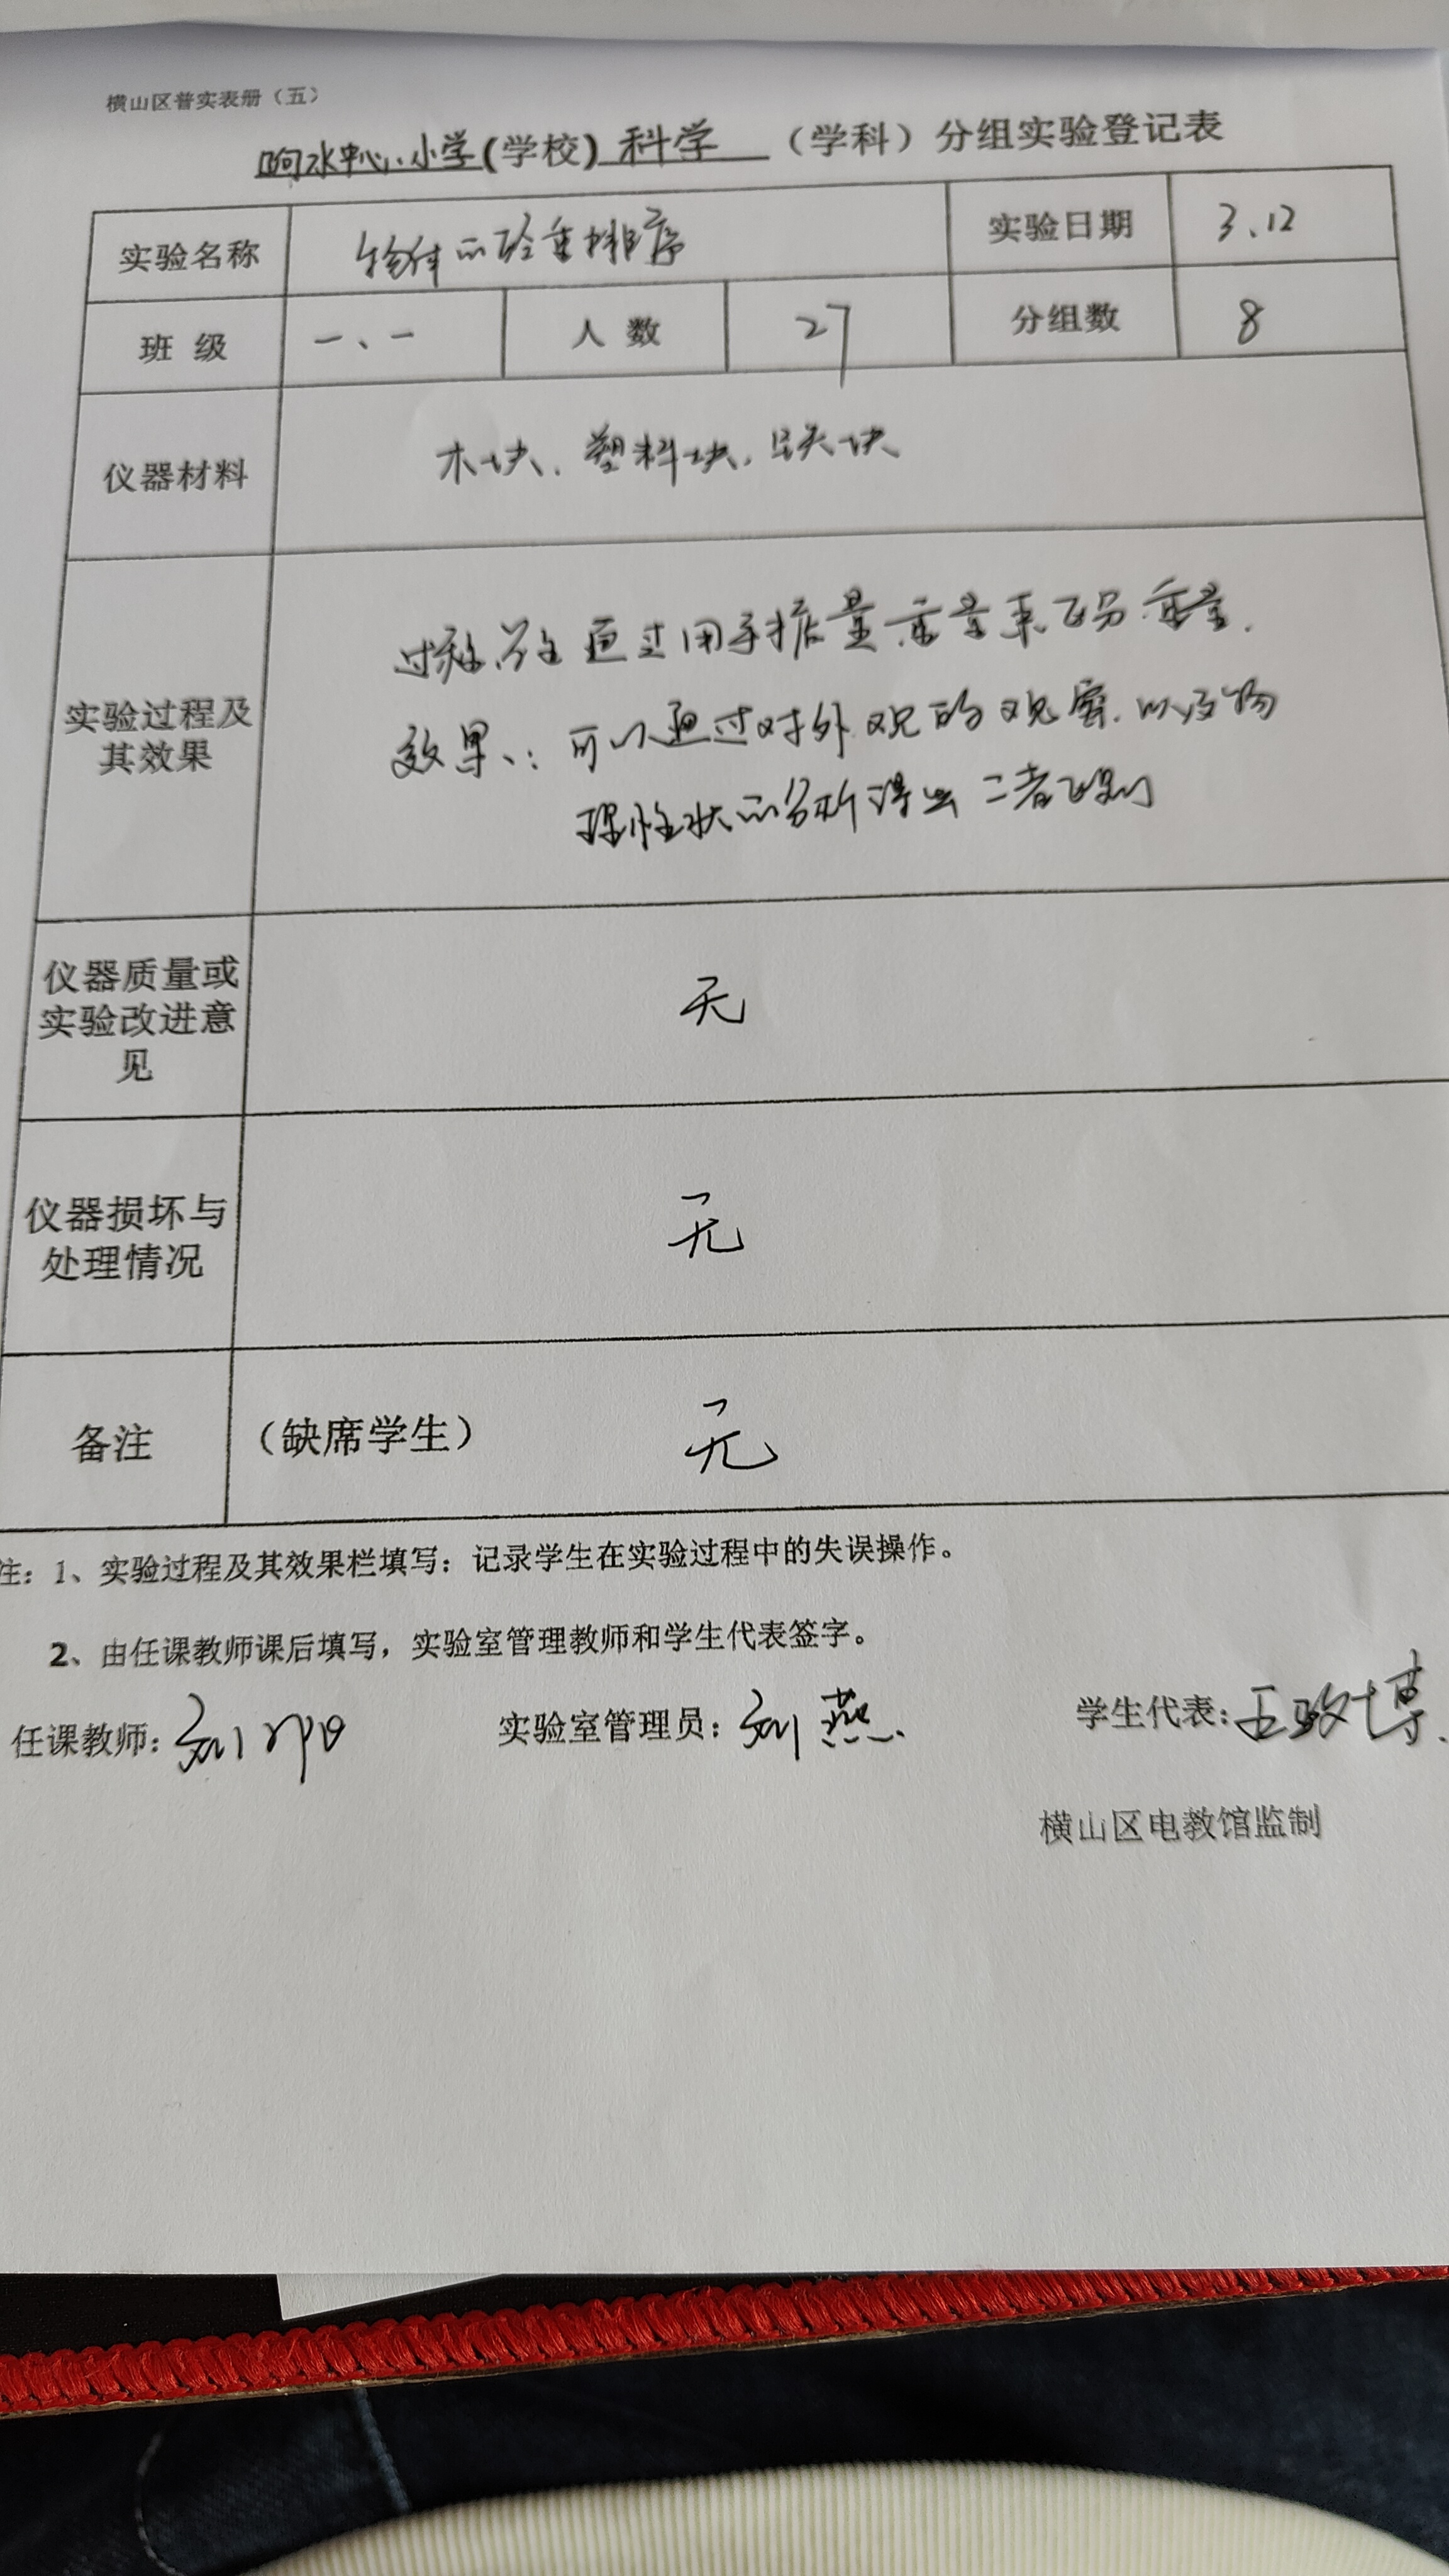 横山区普实表册（五）
响水中心小学(学校) 科学 （学科）分组实验登记表
实验名称 物体的轻重排序 实验日期 3.12
班 级 一、一 人 数 27 分组数 8
仪器材料 木块、塑料块、铁块
通过用手掂量重量来区分重量.
实验过程及
其效果
效果：可以通过对外观的观察.以及物
理性状的分析得出二者区别
仪器质量或
实验改进意
见
无
仪器损坏与
处理情况
无
备注 （缺席学生） 无
注：1、实验过程及其效果栏填写：记录学生在实验过程中的失误操作。
2、由任课教师课后填写，实验室管理教师和学生代表签字。
任课教师：刘 实验室管理员：刘燕. 学生代表：王政博.
横山区电教馆监制